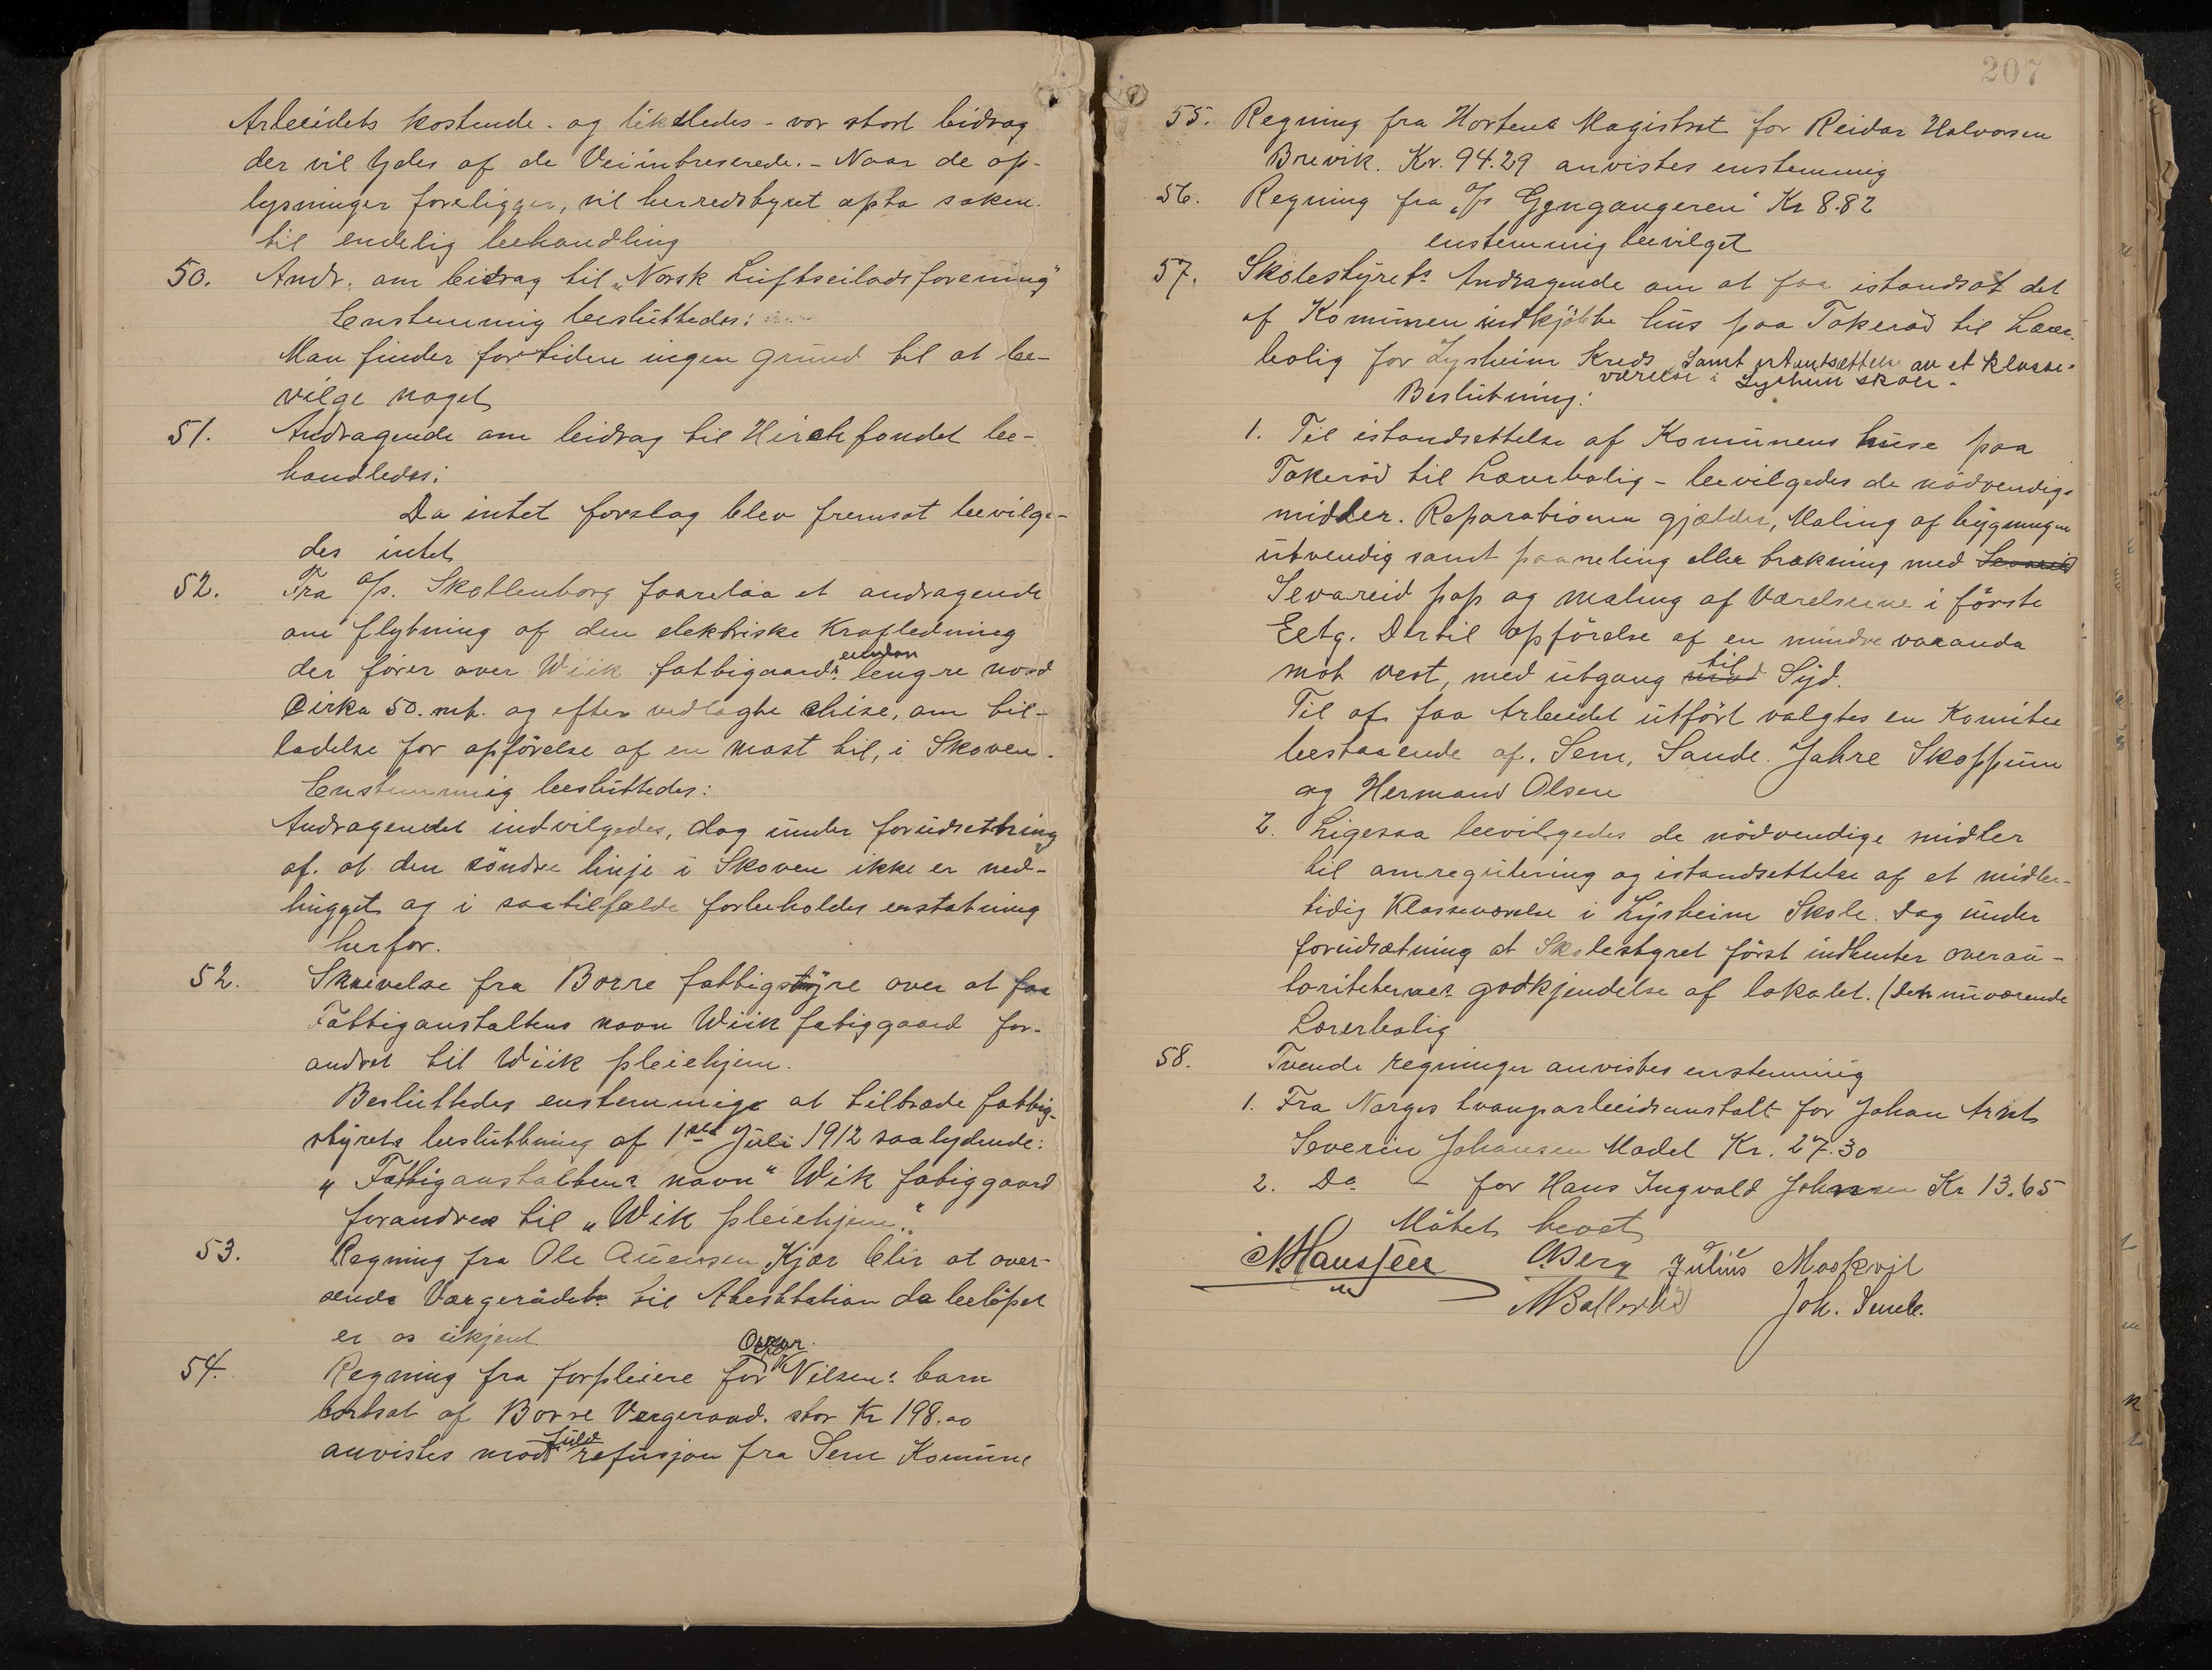 Arbeidets kostende. og likeledes - vor stort bidrag
der vil ydes af de Veiintreserede. - Naar de op-
lysninger foreligger, vil herredstyret opta saken
til endelig behandling
50. Andr. om bidrag til "Norsk Luftseiladsforening"
Enstemmig besluttedes:
Man finder fortiden ingen grund til at be-
vilge noget
51. Andragende om bidrag til Hirchfondet be-
handledes:
Da intet forslag blev fremsat bevilge-
des intet
52. Fra A/s. Skollenborg foorelaa et andragende
om flytning af den elektriske Krafledning
der fører over Wiik fattiggaards eiendom lengre nord
Cirka 50. mt. og efter vedlagte skise, om til-
ladelse for opførelse af en mast til, i Skoven.
Enstemmig besluttedes:
Andragendet indvilgedes, dog under forudsettning
af. at den söndre linje i Skoven ikke er ned-
hugget og i saatilfælde forbeholdes erstatning
herfor.
52. Skrivelse fra Borre fattigstyre over at faa
Fattiganstaltens navn Wiik fatiggaard for-
andret til Wiik pleiehjem.
Besluttedes enstemmige at tiltræde fattig-
styrets besluttning af 1ste Juli 1912 saalydende:
" Fattiganstaltens navn " Wik fatiggaard
forandres til " Wik pleiehjem."
53. Regning fra Ole Kjær blir at over-
sende Vargerådet til Atesttation da beløpet
er os ukjent
54. Regning fra forpleiere for Oskar Nilsens barn
bortsat af Borre Vergeraad. stor Kr 198.00
anvistes mod fuld refusjon fra Sem Komune
207
55. Regning fra Hortens Magistrat for Reidar Halvorsen
Brevik. Kr. 94.29 anvistes enstemmig
56. Regning fra "A/s Gjengangeren" Kr 8.82
enstemmig bevilget
57. Skolestyrets Andragende om at faa istandsat det
af Komunen indkjöbte hus paa Tokeröd til Lærer-
bolig for Lysheim Kreds, Samt istandsættelse av et klasse-
værelse i Lysheim skole.
Beslutning:
1. Til istandsettelse af Komunens huse paa
Tokeröd til Lærerbolig - bevilgedes de nödvendige
midler. Reparationen gjælder, Maling af bygningen
utvendig samt paaneling eller trækning med Sevareid
Sevareid pap og maling af Værelserne i förste
Eetg. Dertil opförelse af en mindre varanda
mot vest, med utgang mod til Syd.
Til at faa Arbeidet utfört valgtes en Komitee
bestaaende af. Sem, Sande. Jahre Skoppum
og Hermand Olsen
2. Ligesaa bevilgedes de nödvendige midler
til omregulering og istandsettelse af et midler-
tidig Klasseværelse i Lysheim Skole. Dog under
forudsætning at Skolestyret först indhenter overau-
toriteternes godkjendelse af lokalet. (Det nuværende
Lærerbolig
58. Tvende regninger anvistes enstemmig
1. Fra Norges tvangsarbeidsanstalt for Johan Arnt
Severin Johansen Model Kr. 27.30
2. Do - for Hans Ingvald Johansen Kr 13.65
Mötet hevet
N Hanssen CBerg Julius Moskvil
Joh. Smeb.